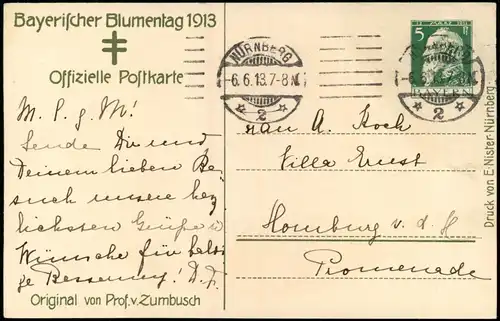 Bayerischer Blumentag 1913
Offizielle Postkarte
M. l. g. M!
Sende Dir und
Deinem lieben Be-
such unsere herz
lichsten Grüße u
Wünsche für baldi
ge Besserung! D. F.
Original von Prof. v. Zumbusch
NÜRNBERG
-6.6.13.7-8N.
2
5
BAYERN
-6.6.13.7-8N.
2
Frau A. Koch
Villa Ernst
Homburg v. d. H
Promenade
Druck von E. Nister-Nürnberg.